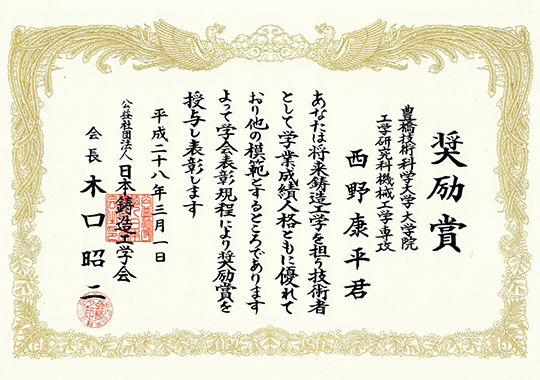 奨励賞
豊橋技術科学大学大学院
工学研究科機械工学専攻
西野康平君
あなたは将来鋳造工学を担う技術者
として学業成績人格ともに優れて
おり他の模範とするところであります
よって学会表彰規程により奨励賞を
授与し表彰します
平成二十八年三月一日
公益社団法人日本鋳造工学会
会長木口昭二